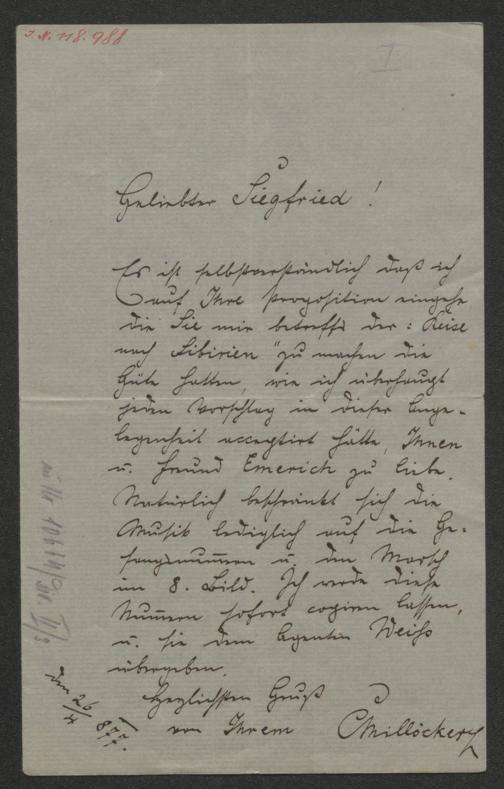 I. N. 118.988
I
Geliebter Siegfried!
Es ist selbstverständlich daß ich
auf Ihre Proposition eingehe
die Sie mir betreffs der: Reise
nach Sibirien" zu machen die
Güte hatten, wie ich überhaupt
jeden Vorschlag in dieser Ange-
legenheit acceptirt hätte, Ihnen
u. Freund Emerich zu liebe.
Natürlich beschränkt sich die
Musik lediglich auf die Ge-
sangsnummern u. den Marsch
im 8. Bild. Ich werde diese
Numern sofort copiren lassen,
u. sie dem Agenten Weiss
übergeben.
Herzlichsten Gruß
von Ihrem CMillöcker
den 26/4 877.